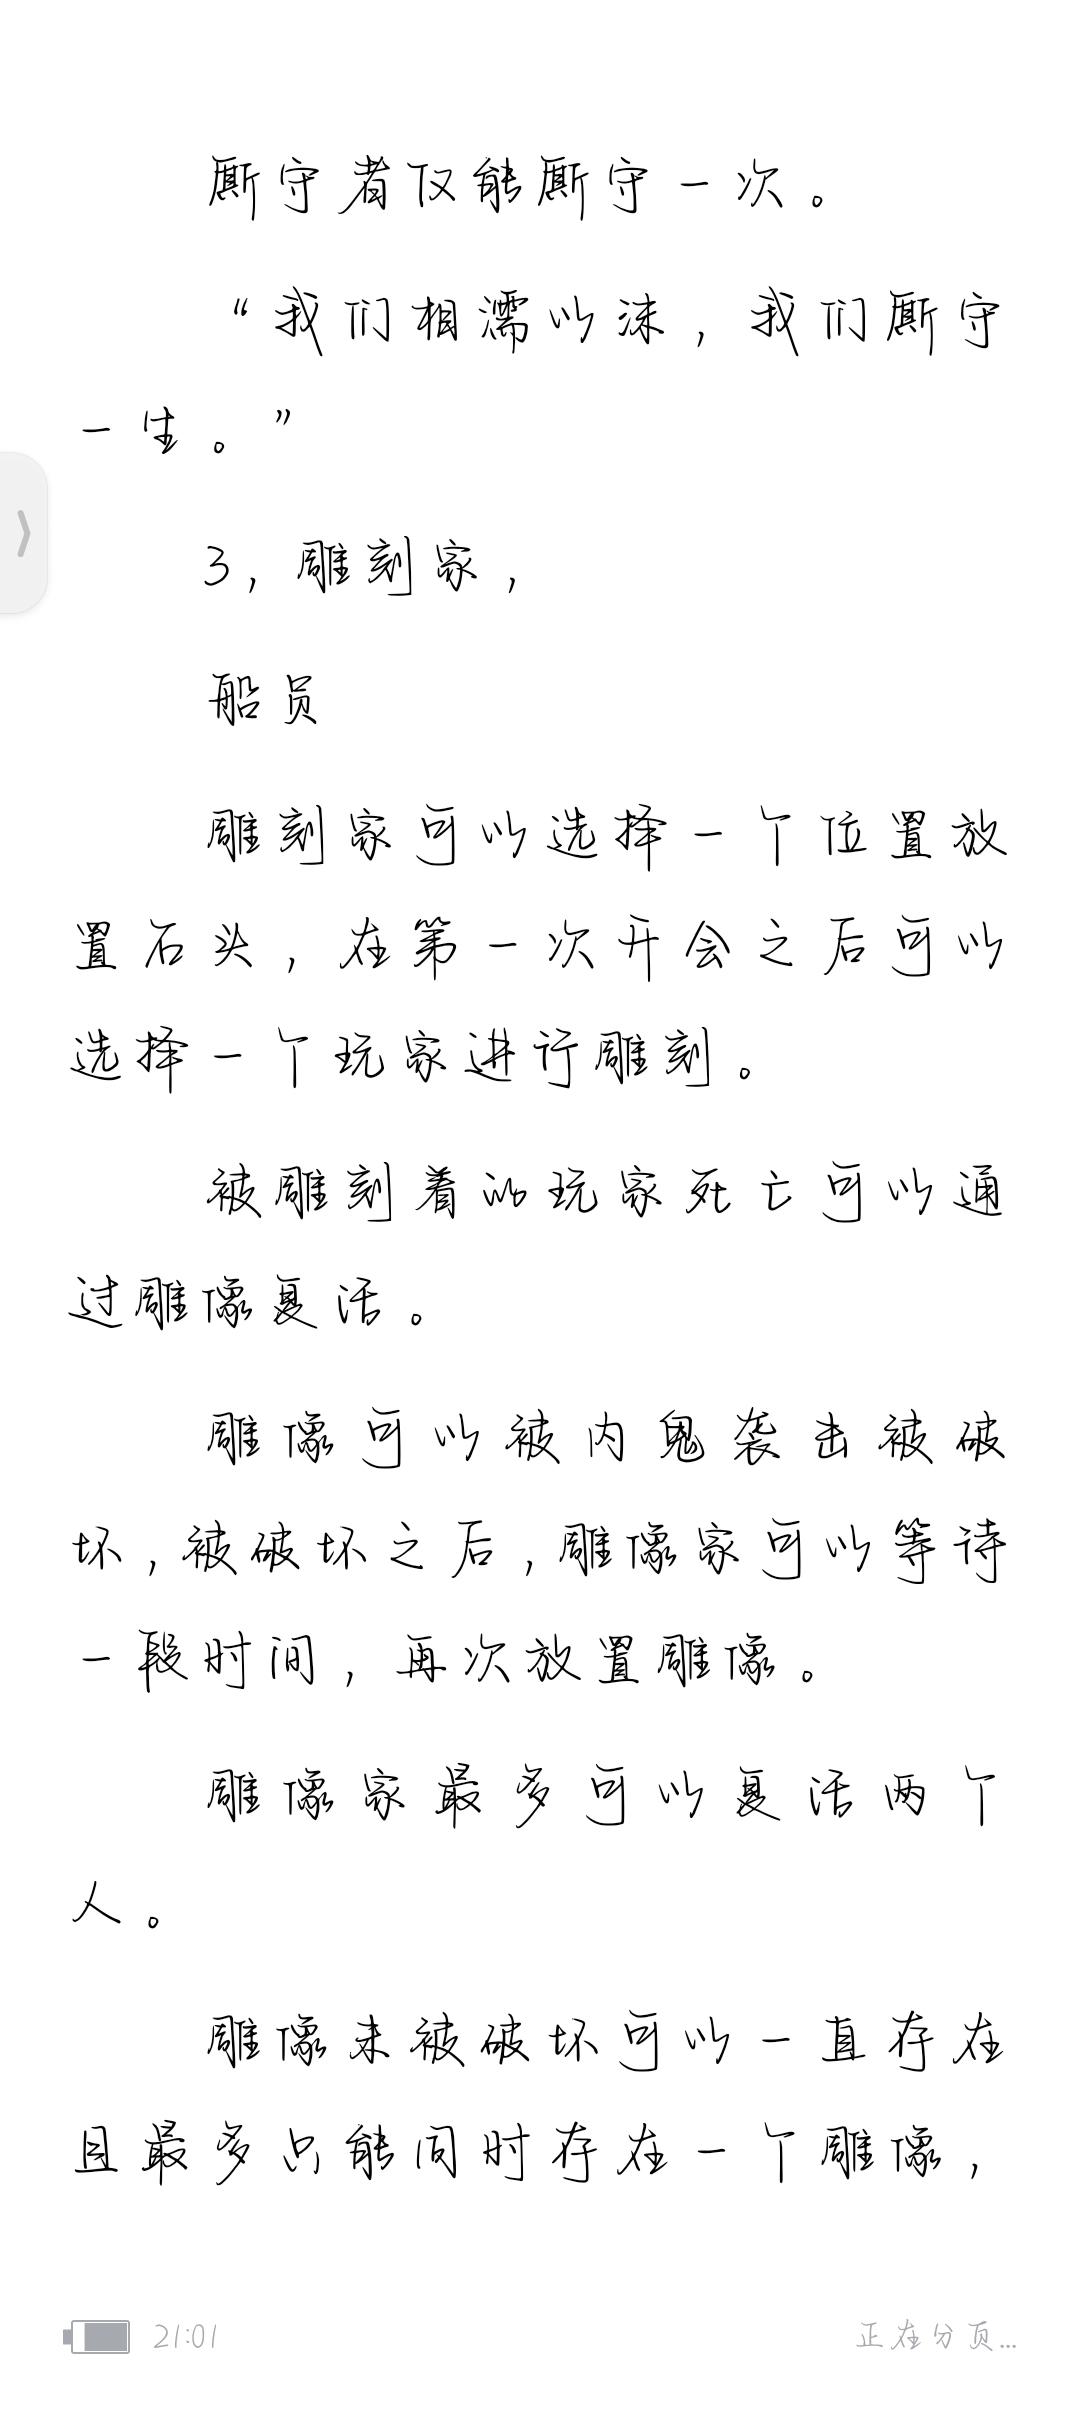 厮守者仅能厮守一次。
“我们相濡以沫，我们厮守
一生。”
3，雕刻家，
船员
雕刻家可以选择一个位置放
置石头，在第一次开会之后可以
选择一个玩家进行雕刻。
被雕刻着的玩家死亡可以通
过雕像复活。
雕像可以被内鬼袭击被破
坏，被破坏之后，雕像家可以等待
一段时间，再次放置雕像。
雕像家最多可以复活两个
人。
雕像未被破坏可以一直存在
且最多只能同时存在一个雕像，
21:01
正在分页...